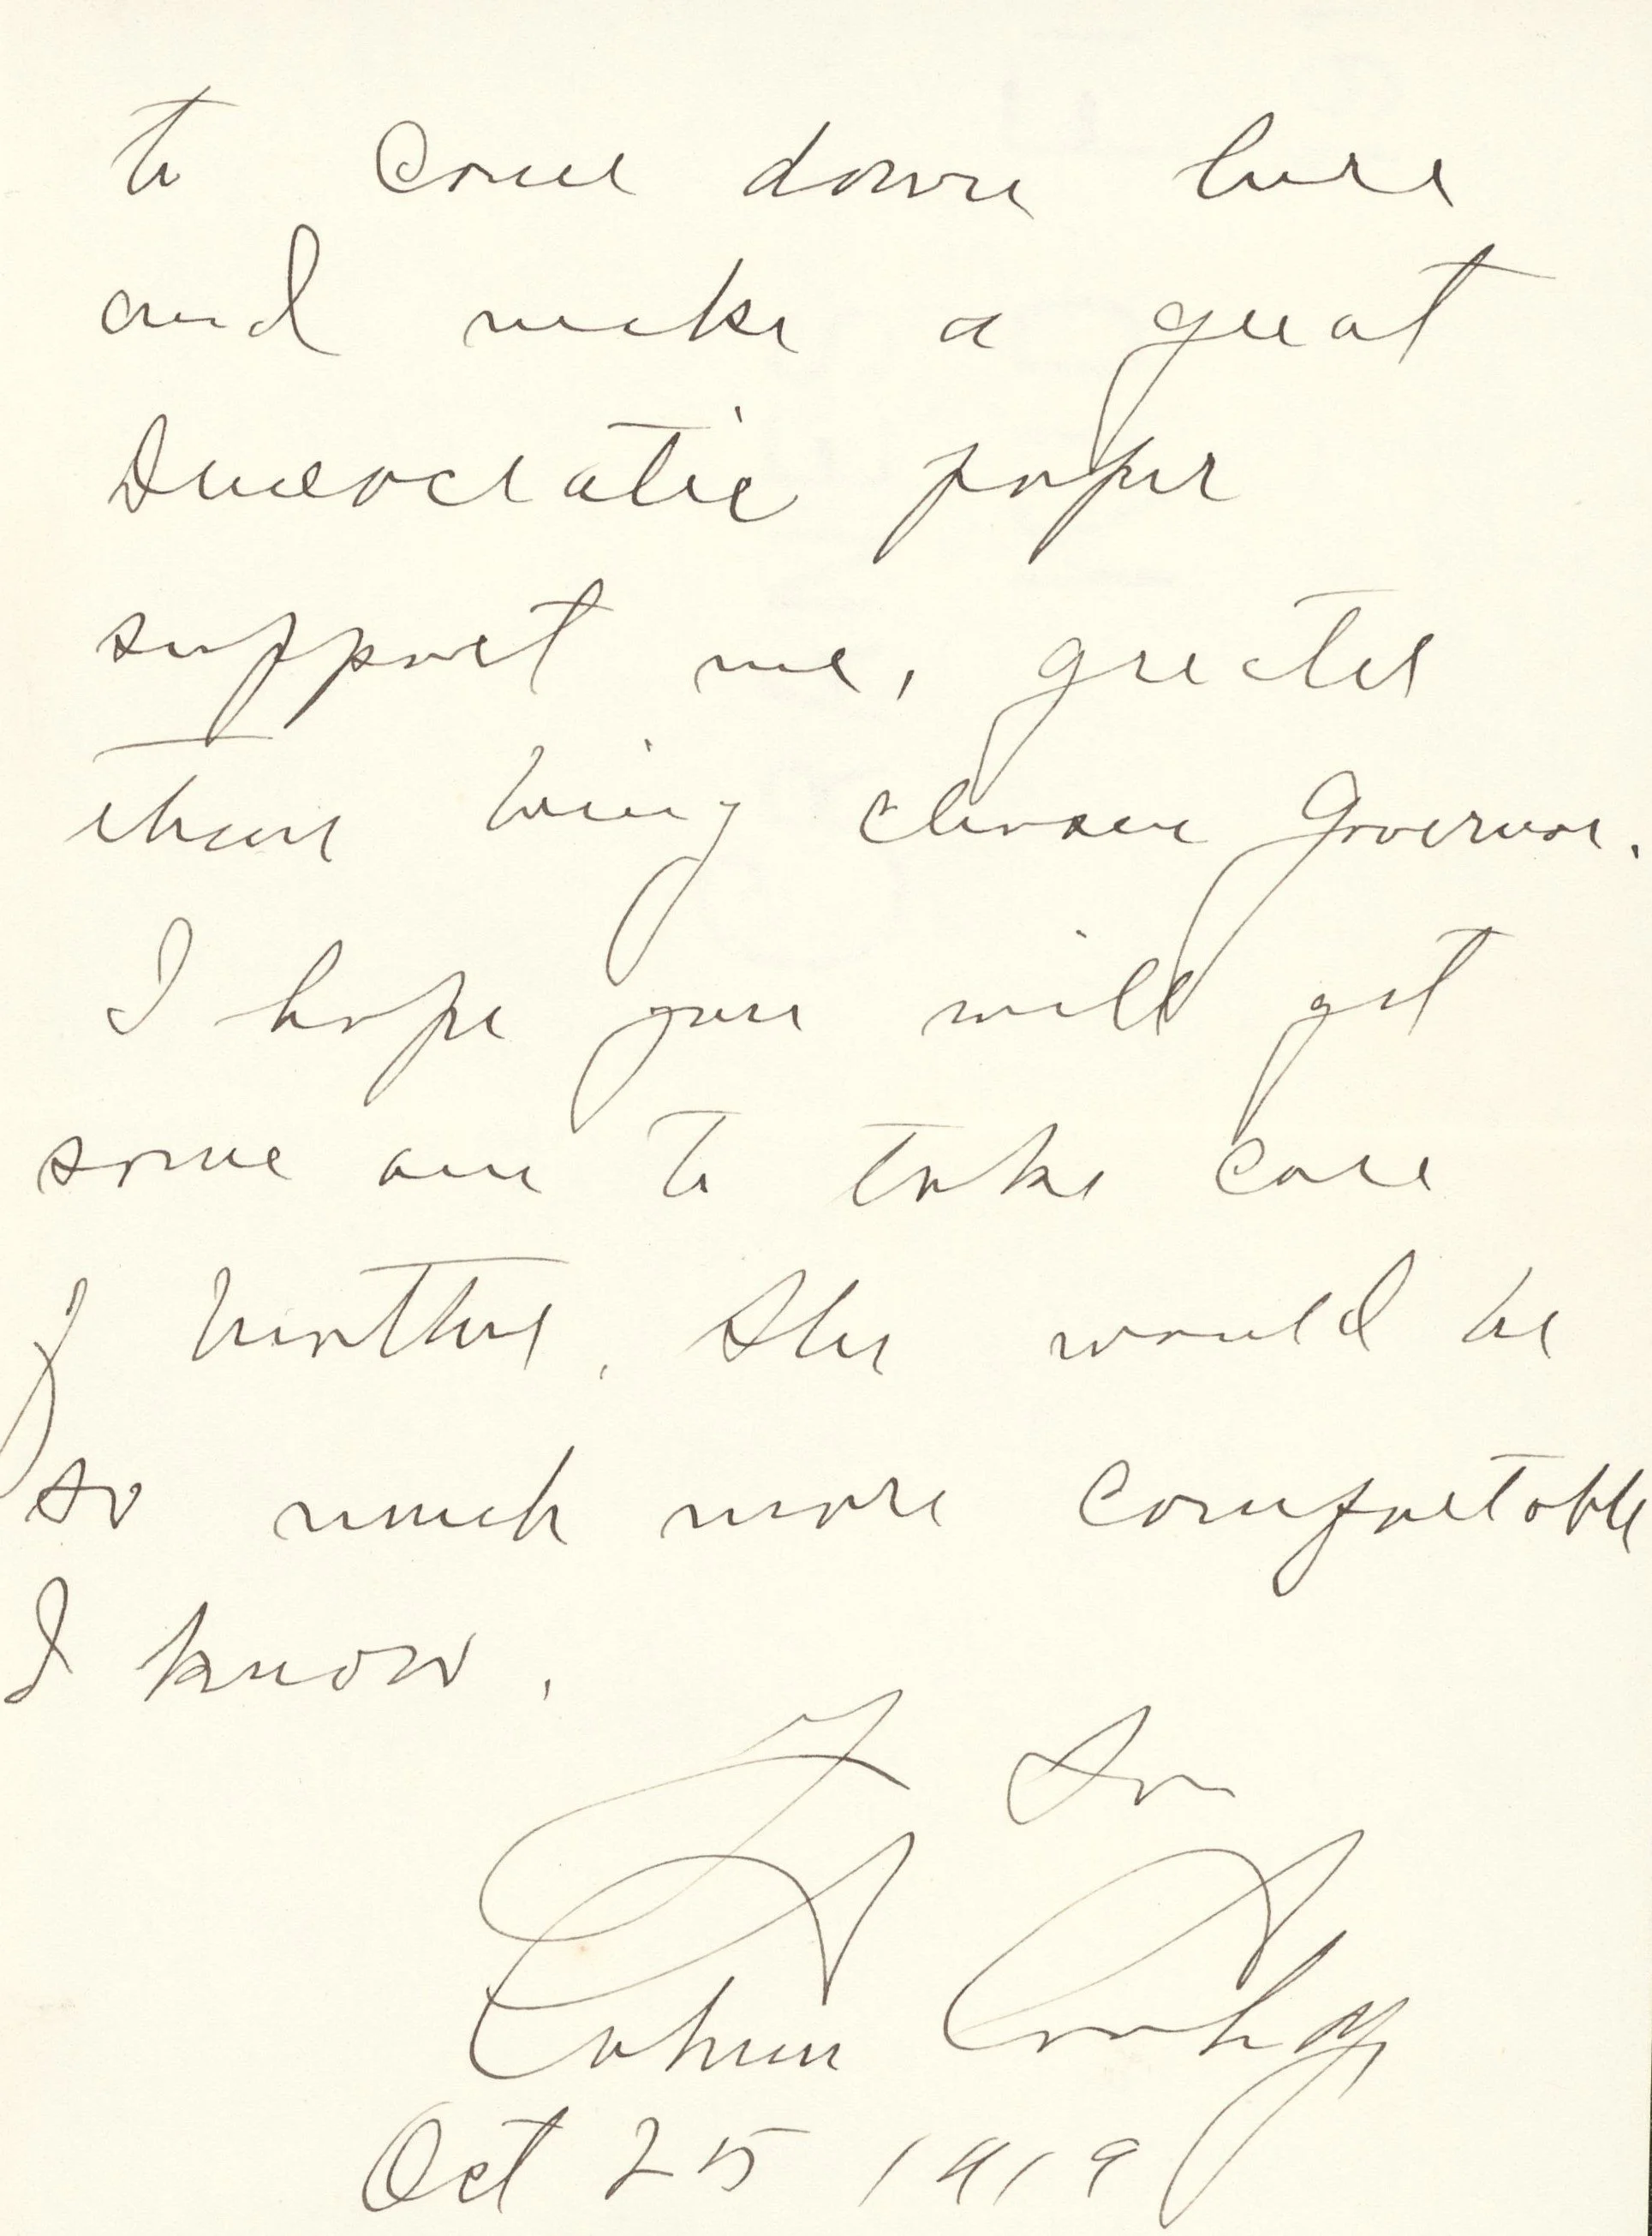 to come down here
and make a great
Democratic paper
support me, greater
than being chosen Governor.
I hope you will get
some one to take care
of mother. She would be
so much more comfortable
I know.
Son
Calvin Coolidge
Oct 25 1919